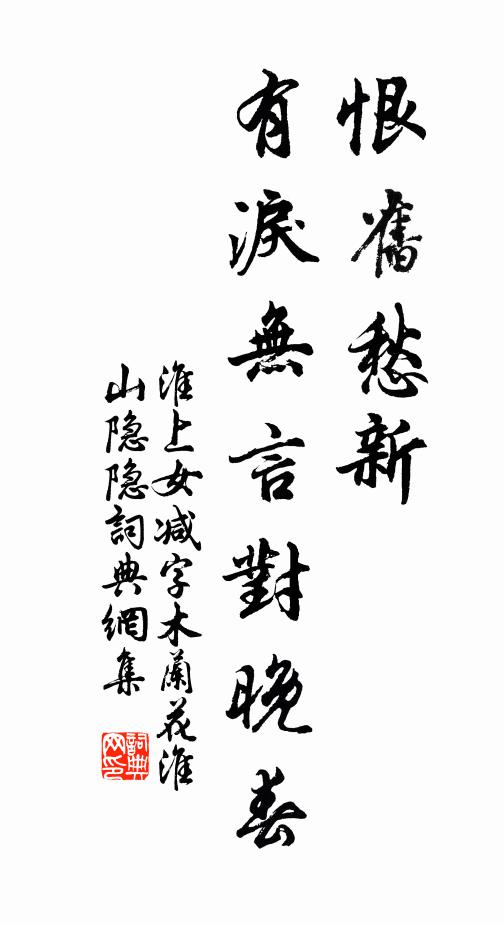 恨舊愁新
有淚無言對晚春
淮上女减字木蘭花淮
山隐隐詞典網集
詞典网印